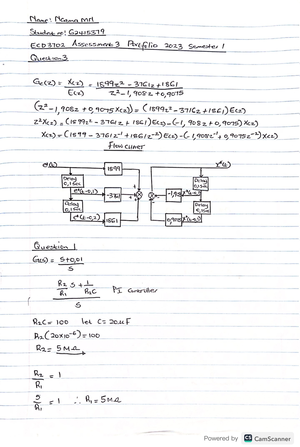 Name: Ncama MM
Student no: G2415379
ECD3702 Assessment 3 Portfolio 2023 Semester 1
Question 3
Gc(z) = X(z) / E(z) = 1899z² - 3761z + 1861 / z² - 1,908z + 0,9075
(z² - 1,908z + 0,9075 X(z)) = (1899z² - 3761z + 1861) E(z)
z²X(z) = (1899z² - 3761z + 1861) E(z) - (-1,908z + 0,9075) X(z)
X(z) = (1899 - 3761z⁻¹ + 1861z⁻²) E(z) - (-1,908z⁻¹ + 0,9075z⁻²) X(z)
Flow chart
1899
Delay
0,1sec
Delay
0,1sec
1861
-1,908
0,908
Question 1
G(s) = S+0,01 / S
R₂/R₁ S + 1/R₁C / S
PI Controller
R₂C = 100 let C = 20µF
R₂(20x10⁻⁶) = 100
R₂ = 5MΩ
R₂/R₁ = 1
5/R₁ = 1 ∴ R₁ = 5MΩ
Powered by CS CamScanner